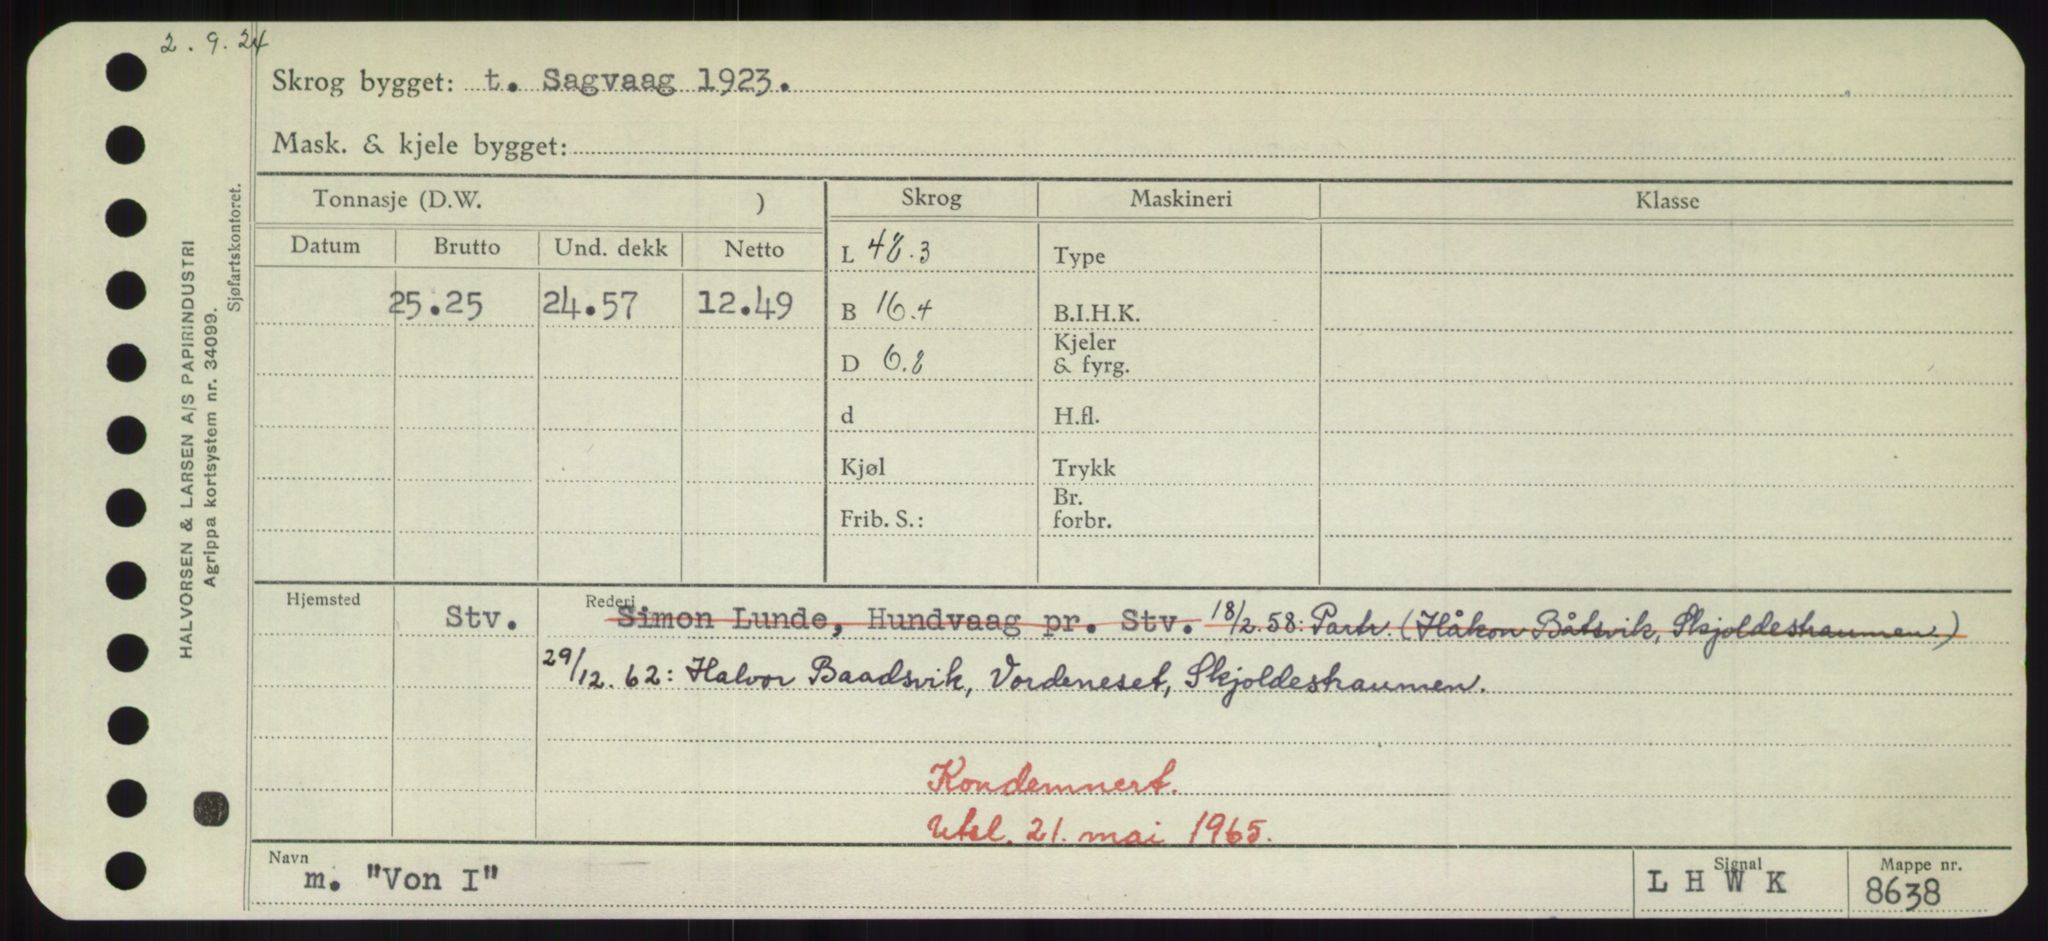 2. 9. 24
Skrog bygget: t. Sagvaag 1923.
Mask. & kjele bygget:
HALVORSEN & LARSEN A/S PAPIRINDUSTRI
Agrippa kortsystem nr. 34099.
Sjøfartskontoret.
Tonnasje (D.W. ) Skrog Maskineri Klasse
Datum Brutto Und. dekk Netto
L 48.3 Type
25.25 24.57 12.49
B 16.4 B.I.H.K.
D 6.8 Kjeler
& fyrg.
d H.fl.
Kjøl Trykk
Frib. S.: Br.
forbr.
Hjemsted Rederi
Stv. Simon Lunde, Hundvaag pr. Stv. 18/2.58: Partr. (Håkon Båtsvik, Skjoldeshaumen)
29/12.62: Halvor Baadsvik, Vordeneset, Skjoldeshaumen.
Kondemnert.
Utsl. 21. mai 1965.
Navn Signal Mappe nr.
m. "Von I" L H W K 8638